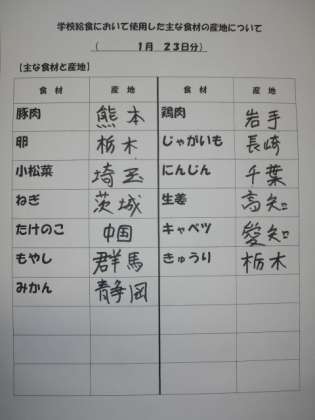 学校給食において使用した主な食材の産地について
( 1月 23日分)
【主な食材と産地】
食材 産地 食材 産地
豚肉 熊本 鶏肉 岩手
卵 栃木 じゃがいも 長崎
小松菜 埼玉 にんじん 千葉
ねぎ 茨城 生姜 高知
たけのこ 中国 キャベツ 愛知
もやし 群馬 きゅうり 栃木
みかん 静岡